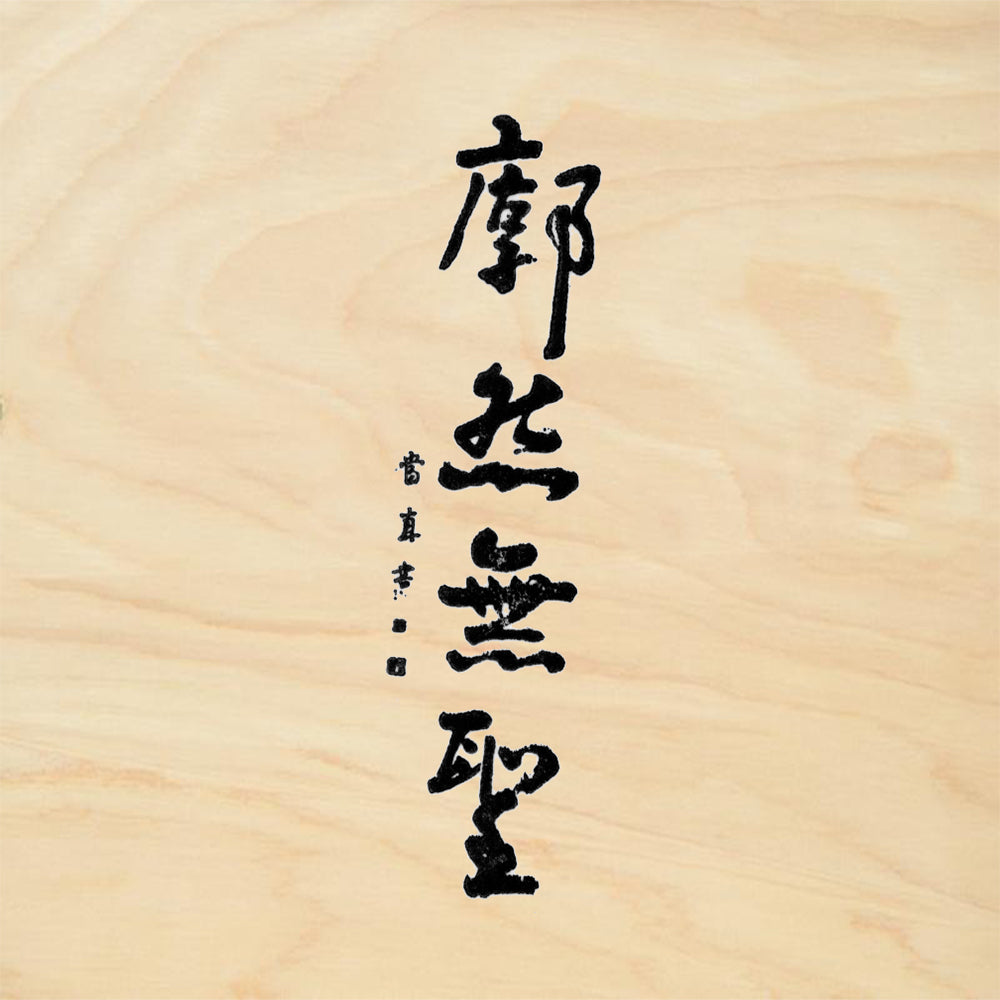 廓然無聖
當真書